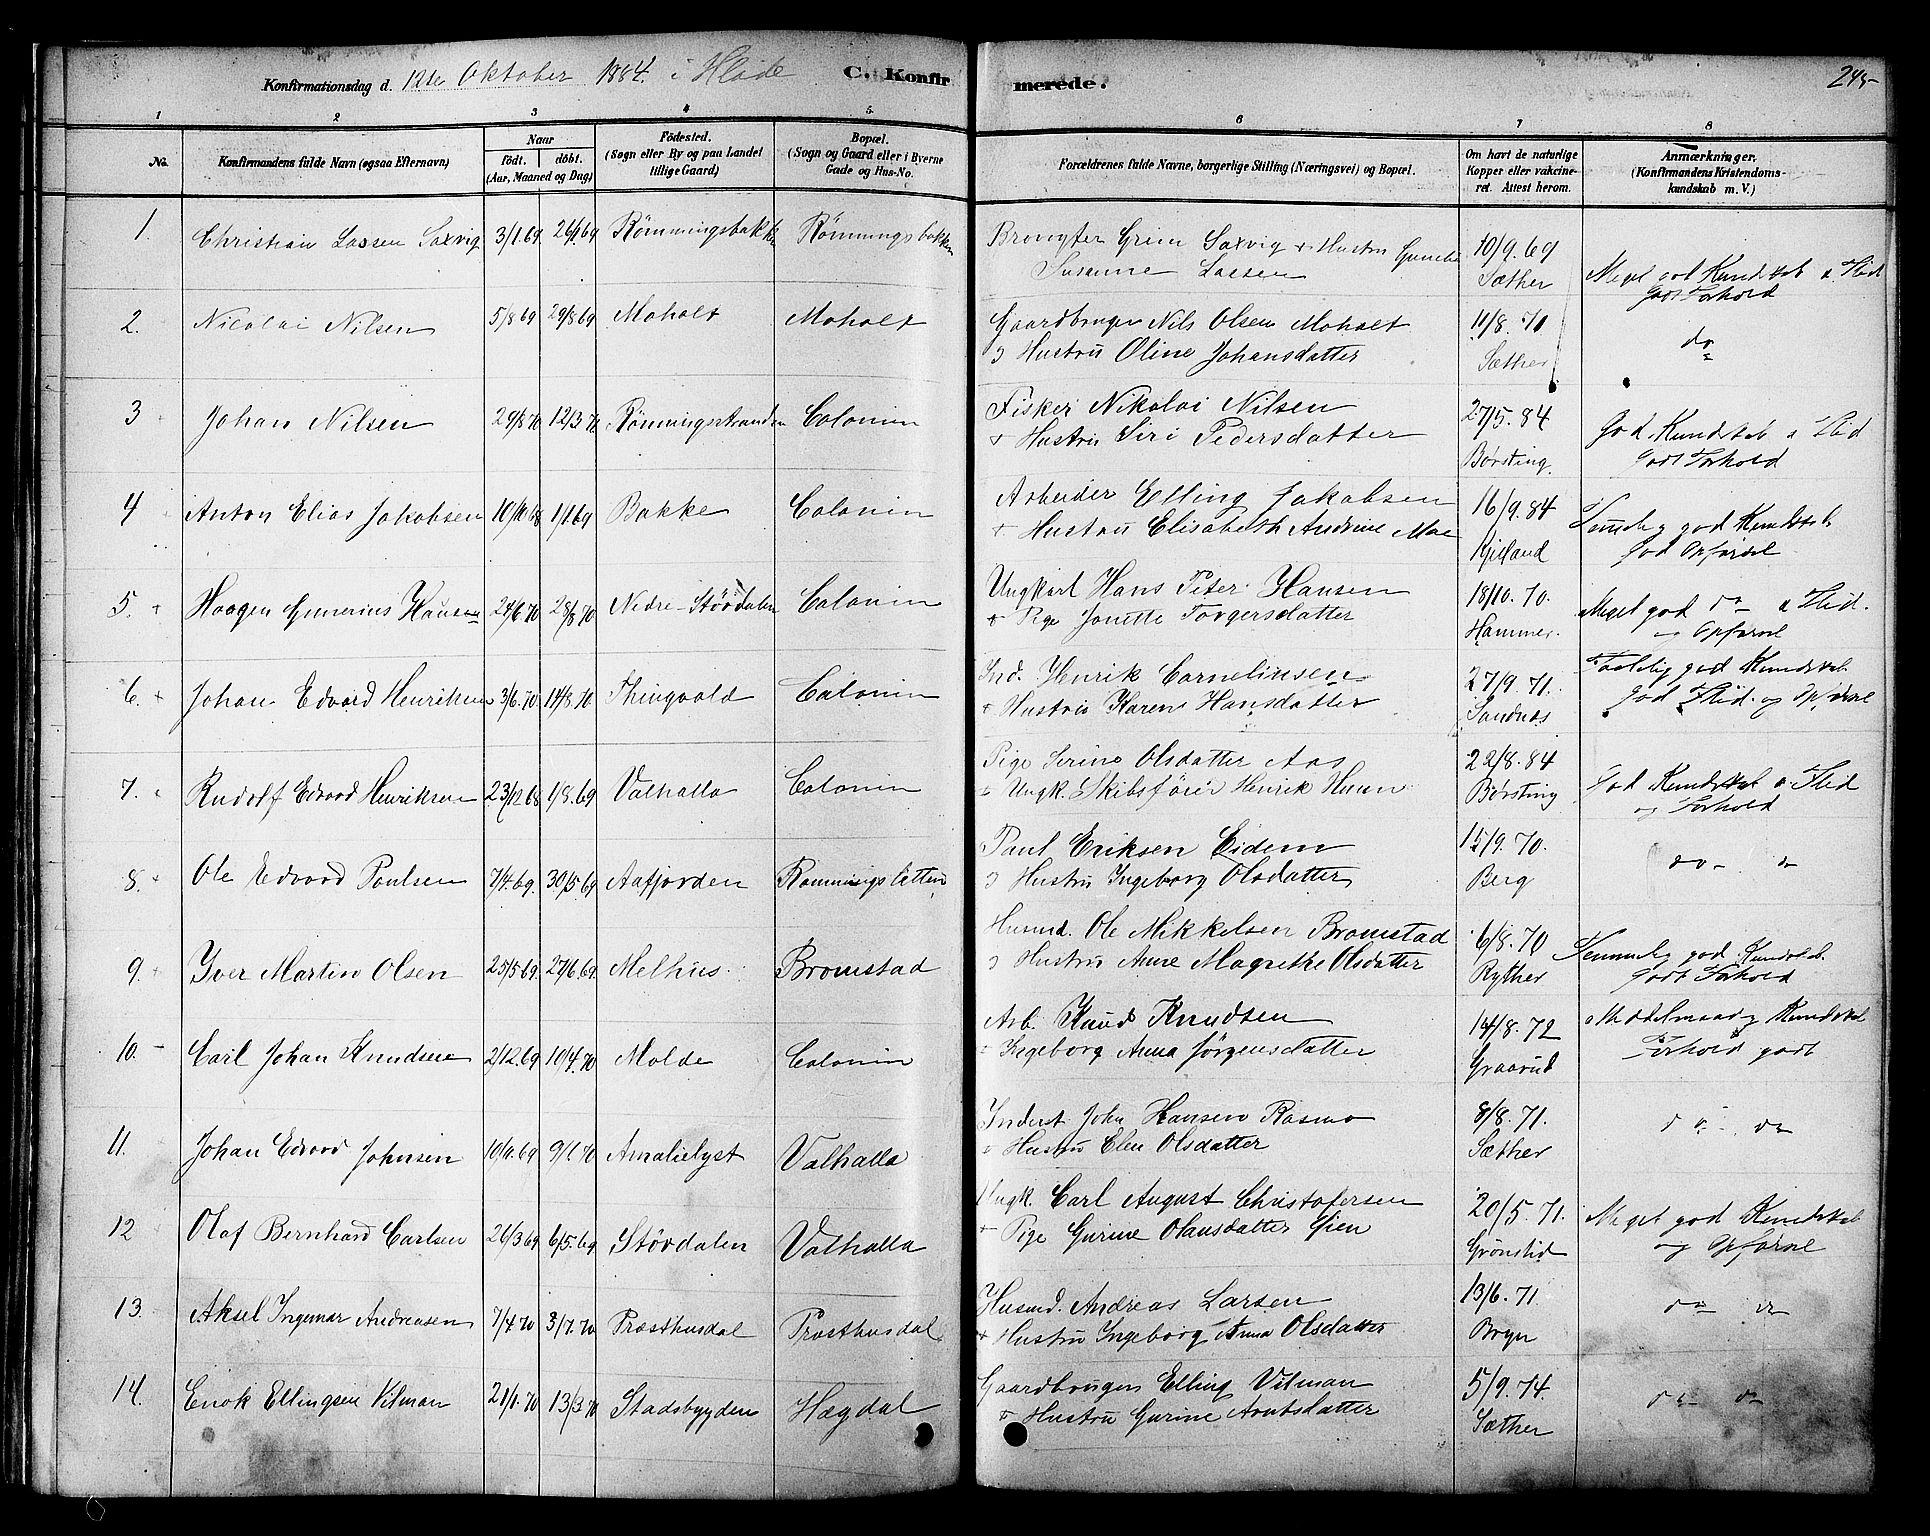 Konfirmationsdag d. 12te Oktober 1884 i Hlade C. Konfirmerede. 245
1 2 3 4 5 6 7 8
No.
Konfirmandens fulde Navn (ogsaa Efternavn)
Naar
födt. döbt.
(Aar, Maaned og Dag)
Födested.
(Sogn eller By og paa Landet
tillige Gaard)
Bopæl.
(Sogn og Gaard eller i Byerne
Gade og Hus-No.
Forældrenes fulde Navne, borgerlige Stilling (Næringsvei) og Bopæl.
Om havt de naturlige
Kopper eller vakcine-
ret. Attest herom.
Anmærkninger.
(Konfirmandens Kristendoms-
kundskab m. V.)
1. Christian Lassen Saxvig 3/1.69 26/1.69 Rønningsbakken Rønningsbakken
Grim Saxvig + Hustru
Susanne Lassen
10/9.69
Sæther
Meget god Kundskab o Flid
godt Forhold
2. Nicolai Nilsen 5/8 69 29/8 69 Moholt Moholt
Gaardbruger Nils Olsen Moholt
o Hustru Oline Johansdatter
11/8.70
Sæther
do
3 Johan Nilsen 29/8 70 12/3 72 Rønningsstranden Colonien
Fisker Nikolai Nilsen
+ Hustru Siri Pedersdatter
27/5.84
Børsting
God Kundskab o Flid
godt Forhold
4 Anton Elias Jakobsen 10/10 68 1/1 69 Bakke Colonien
Arbeider Elling Jakobsen
+ Hustru Elisabeth Andrine Moe
16/9.84
god Kundskab
god Opførsel
5. Haagen Gunerius Hansen 24/6 70 28/8 70 Nedre-Størdalen Colonien
Ungkarl Hans Peter Hansen
+ Pige Jonette Torgersdatter
18/10.70.
Hammer
Meget god do o Flid.
og Opførsel
6. Johan Edvard Henriksen 3/6.70 14/8.70 Thingvold Colonien
Ind. Henrik Corneliusen
+ Hustru Karen Hansdatter
27/9.71.
Sandnes
Taalelig god Kundskab
god Flid og Opførsel
7. Rudolf Edvard Henriksen 23/12 68 1/8.69 Valhalla Colonien
Pige Serine Olsdatter Aas
+ Ungk. Skibsfører Henrik
22/8.84
Børsting
God Kundskab o Flid
og Forhold
8. Ole Edvard Paulsen 7/4.69. 30/5 69 Aafjorden Rønningsletten
Paul Eriksen Eidem
o Hustru Ingeborg Olsdatter
15/9.70.
Berg
do do
9. Iver Martin Olsen 25/5 69. 27/6 69 Melhus Bromstad
Husmd. Ole Mikkelsen Bromstad
o Hustru Anne Magrethe Olsdatter
6/8.70
Rythter
Temmelig god Kundskab
godt Forhold
10. Carl Johan Knudsen 2/12.69 10/4.70 Molde Colonien
Arb. Knud Knudsen
+ Ingeborg Anna Jørgensdatter
14/8.72
Graarud
Middelmaadig Kundskab
Forhold godt
11. Johan Edvard Johnsen 10/10 69 9/1.70 Amalielyst Valhalla
Inderst John Hansen Rasmo
o Hustru Elen Olsdatter
8/8.71.
Sæther
do do
12 Olaf Bernhard Carlsen 26/3 69 6/5.69 Størdalen Valhalla
Ungk. Carl August Christofersen
+ Pige Gurine Olausdatter Gien
20/5.71.
Meget god Kundskab
og Opførsel
13. Aksel Ingemar Andreasen 7/4 70 3/7.70 Prosthusdal Prosthusdal
Husmd. Andreas Larsen
+ Hustru Ingeborg Anna Olsdatter
13/6.71.
Bryn
do do
14. Enok Ellingsen Vilman 21/1.70 13/3.70 Stadsbygden Hægdal
Gaardbruger Elling Vilman
o Hustru Gurine Arntsdatter
5/9.74.
Sæther
do do